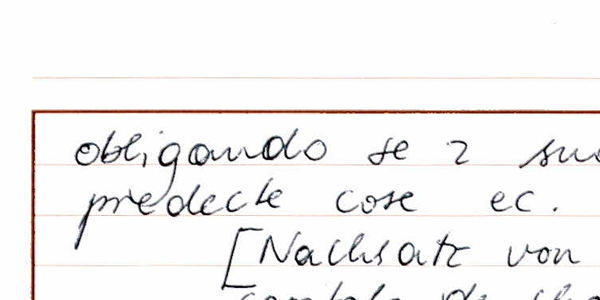 obligando se 2
predecte cose ec.
[Nachsatz von